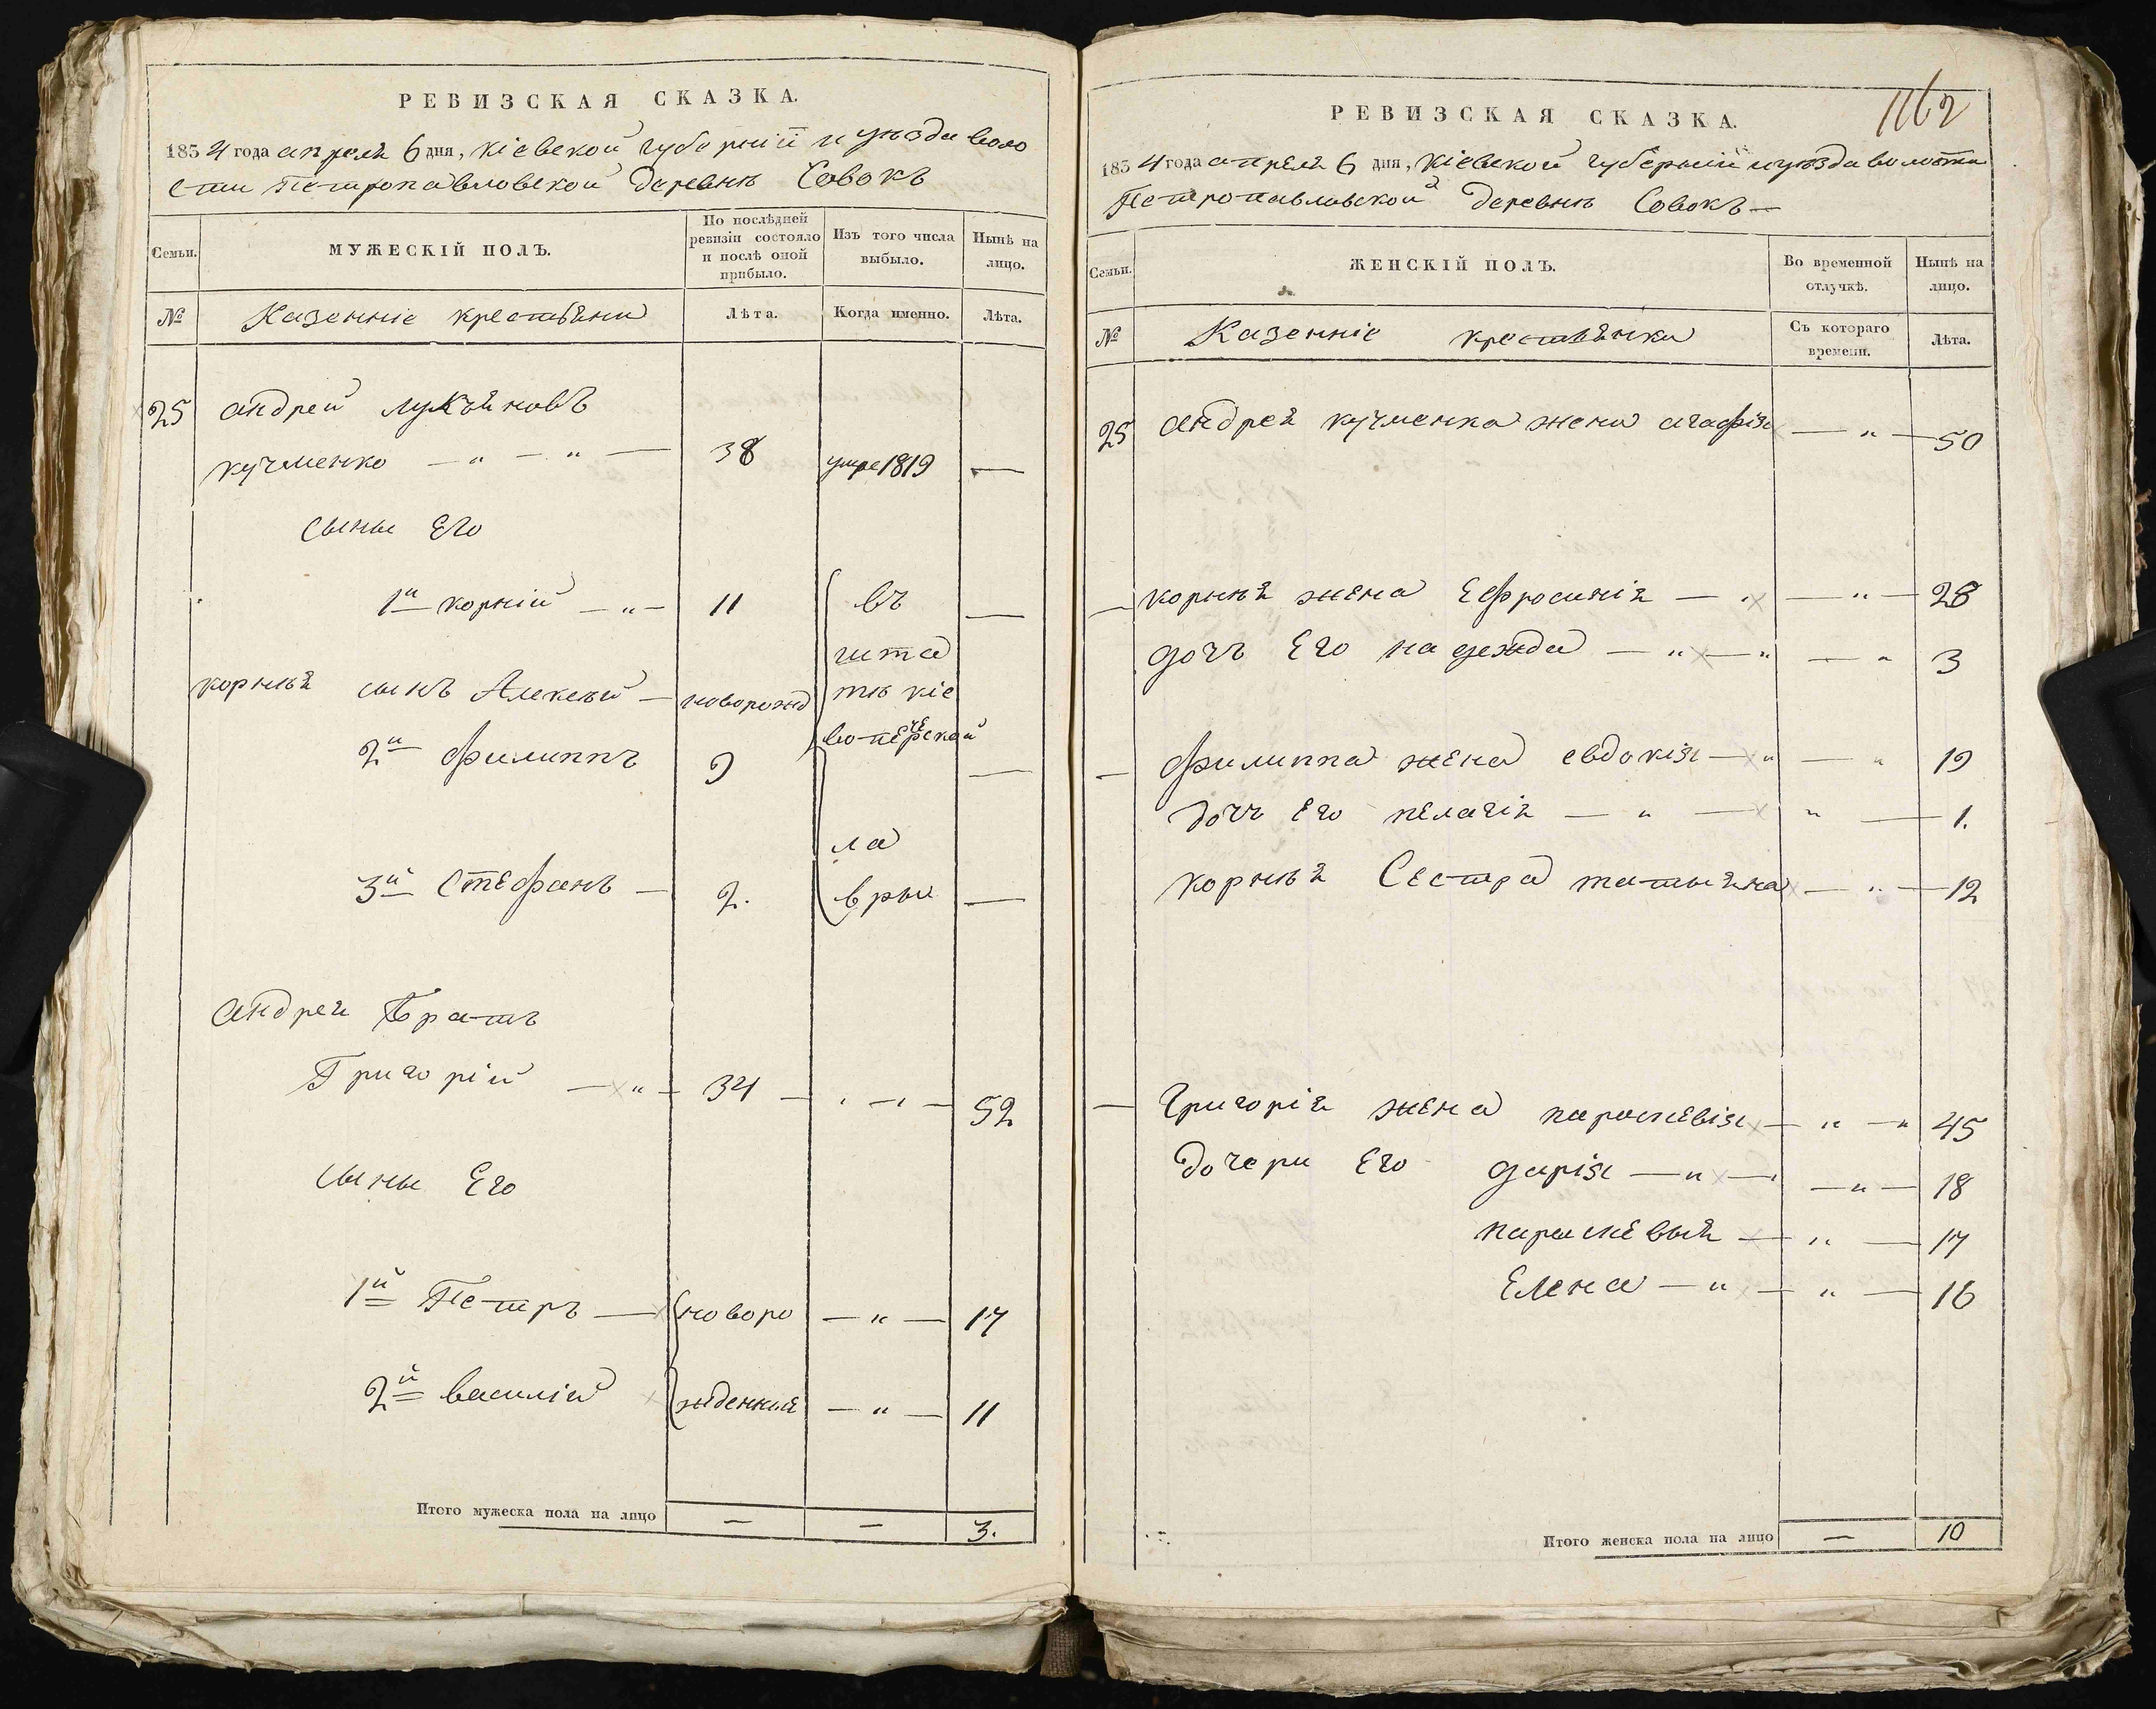 РЕВИЗСКАЯ СКАЗКА.
1834 года апреля 6 дня, кіевской губерніи и уезда воло
сти петропавловской деревнѣ Совокъ
Семьи. МУЖЕСКІЙ ПОЛЪ. По послѣдней ревизіи состояло и послѣ оной прибыло. Изъ того числа выбыло. Нынѣ на лицо.
№ Казенніе крестьяни Лѣта. Когда именно. Лѣта.
25 андрей лукъяновъ
кучменко — „ — „ — 38 умре 1819 —
сыны Его
1й корній — „ — 11 въ —
чита
корнѣя сынъ Алексѣй — новорожд тѣ кіе
вопечерской
2й филиппъ 9 —
ла
3й Стефанъ — 2. вры —
андрея братъ
Григорій — „ — 34 — „ — 52
сыны Его
1й Петръ — новоро — „ — 17
2й василій жденныя — „ — 11
Итого мужеска пола на лицо — — 3.
1162
РЕВИЗСКАЯ СКАЗКА.
1834 года апреля 6 дня, кіевской губерніи и уезда волости
Петропавловской деревнѣ Совокъ —
Семьи. ЖЕНСКІЙ ПОЛЪ. Во временной отлучкѣ. Нынѣ на лицо.
№ Казенніе крестьянки Съ котораго времени. Лѣта.
25 андрея кучменка жена агафія — „ — 50
— корнѣя жена Ефросинія — „ — „ — 28
дочъ Его надежда — „ — „ — „ 3
— филиппа жена евдокія — „ — „ 19
дочъ Его пелагія — „ — „ — 1.
корнѣя Сестра татьяна — „ — 12
— Григорія жена параскевія — „ — „ 45
дочери Его дарія — „ — — „ — 18
параскевыя — „ — 17
Елена — „ — „ — 16
Итого женска пола на лицо — 10